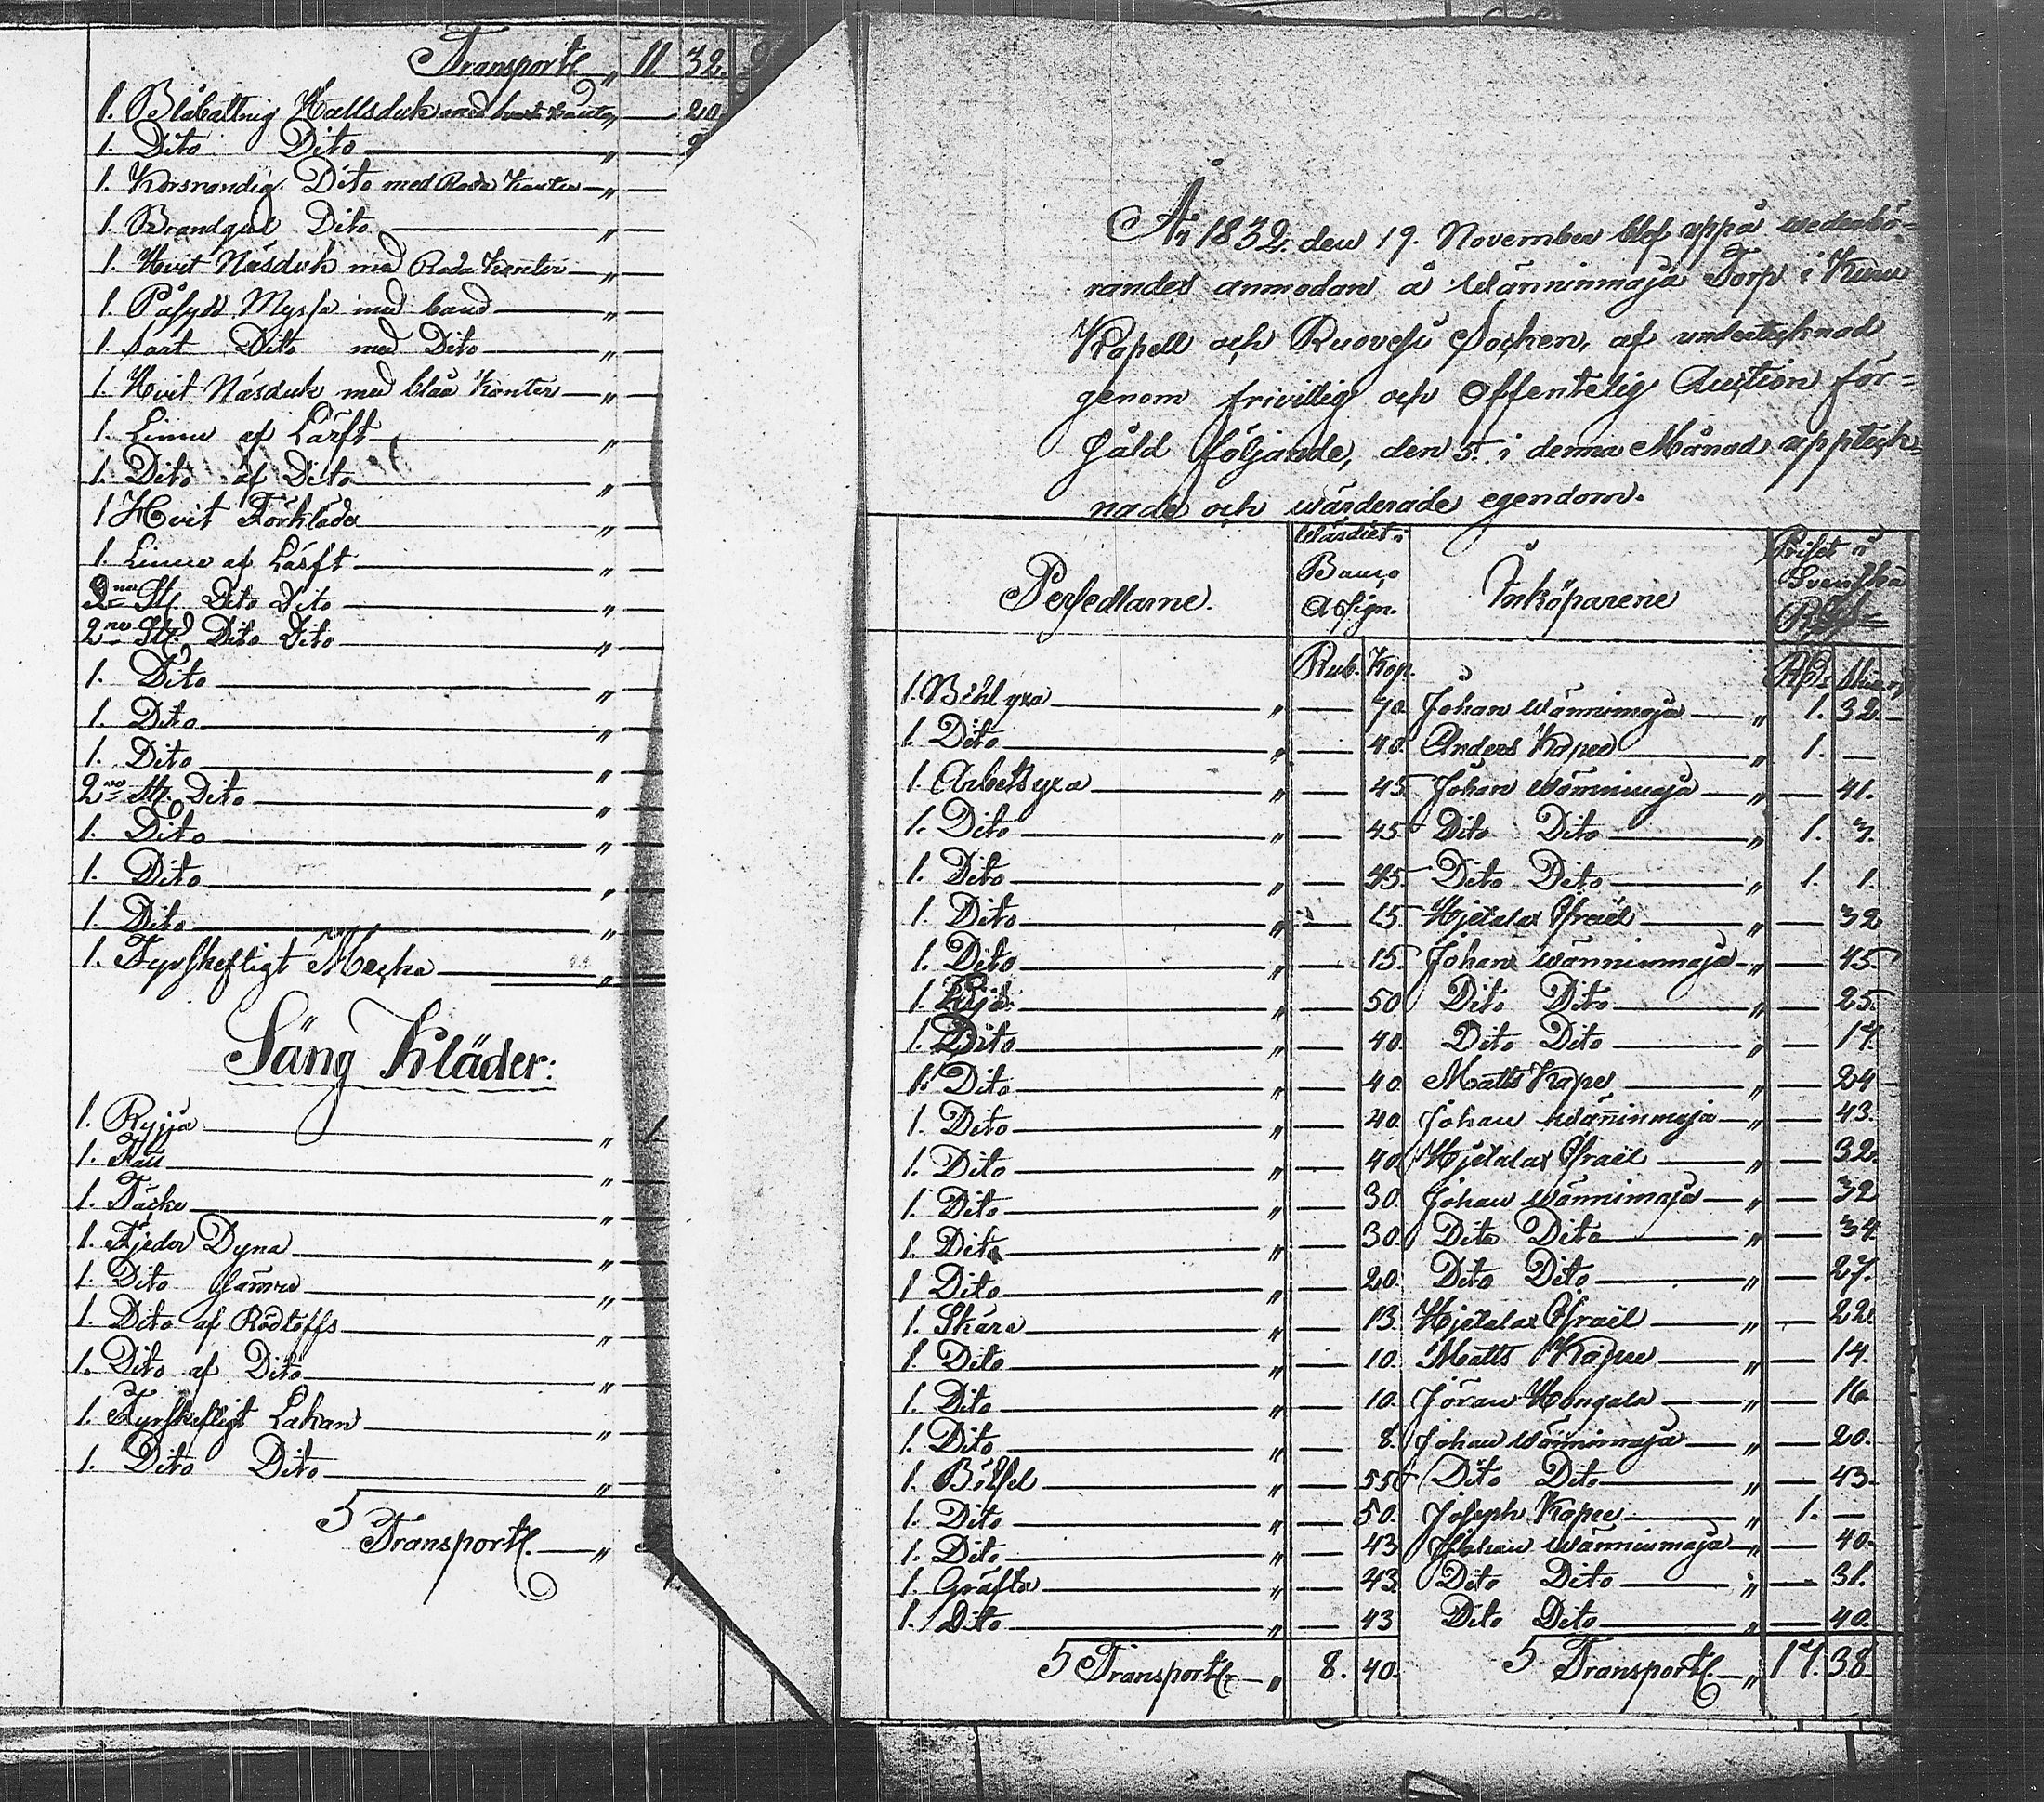 Transport „ 11. 32.
1. Blåbattnig Hallsduk med hvit kanter „ — 20.
1. Dito Dito „ —
1. Korsrandig Dito med Röda Kanter „ —
1. Brandgul Dito „ —
1. Hvit Näsduk med Röda Kanter „ —
1. Påsydd Myssa med band „ —
1. Dito med Dito „ —
1. Hvit Näsduk med blåa Kanter „ —
1. Linne af Lärft „ —
1. Dito af Dito „ —
1 Hvit Förkläde „ —
1. Linne af Lärft „ —
2ne St. Dito Dito „ —
2ne St. Dito Dito „ —
1. Dito „ —
1. Dito „ —
1. Dito „ —
2ne St. Dito „ —
1. Dito „ —
1. Dito „ —
1. Dito „ —
1. Fyrskeftigt „ —
Säng Kläder:
1. Ryija „
1. Fäll „ —
1. Täcke „ —
1. Fjeder Dyna „ —
1. Dito „ —
1. Dito af „ —
1. Dito af Dito „ —
1. Fyrskeftigt Lakan „ —
1. Dito Dito „ —
Transport. „
År 1832. den 19. November blef uppå wederbö-
randes anmodan å Wänninmaja Torp i Kuru
Kapell och Ruovesi Socken, af undertecknad
genom frivillig och Offentelig Auction för-
såld följande, den 5. i denna Månad uppteck-
nade och wärderade egendom.
Persedlarne. Wärdiet i Banco Assign. Inköparene Priset i Svenska
Rub. Kop.
1. Bihl yxa „ — 70. Johan Wänninmaja „ 1. 32.
1. Dito „ — 40. Anders Kapee „ 1. —
1. Arbetsyxa „ — 45. Johan Wänninmaja „ — 41.
1. Dito „ — 45 Dito Dito „ 1. 3.
1. Dito „ — 45. Dito Dito „ 1. 1.
1. Dito „ — 15 Hjetalax Israël „ — 32
1. Dito „ — 15. Johan Wänninmaja „ — 45.
1. „ — 50 Dito Dito „ — 25.
1. Dito „ — 40. Dito Dito „ — 17.
1. Dito „ — 40 Matts Kapee „ — 24
1. Dito „ — 40 Johan Wänninmaja „ — 43.
1. Dito „ — 40. Hjetalax Israël „ — 32.
1. Dito „ — 30. Johan Wänninmaja „ — 32
1. Dito „ — 30. Dito Dito „ — 34
1 Dito „ — 20. Dito Dito „ — 27.
1. Skära „ — 13. Hjetalax Israël „ — 22.
1 Dito „ — 10. Matts Kapee „ — 14.
1. Dito „ — 10. Jöran Hongala „ — 16
1. Dito „ — 8. Johan Wänninmaja „ — 20.
1. „ — 55 Dito Dito „ — 43.
1. Dito „ — 50. Joseph Kapee „ 1. —
1. Dito „ — 43 Johan Wänninmaja „ — 40.
1. Gräfta „ — 43. Dito Dito „ — 31.
1. Dito „ — 43 Dito Dito „ — 40.
Transport. „ 8. 40. Transport. „ 17. 38.